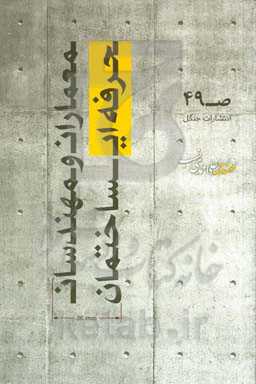 معماران و مهندسان
حرفه‌ای ساختمان
ص ۴۹
انتشارات جنگل
خانه کتاب
ketab.ir